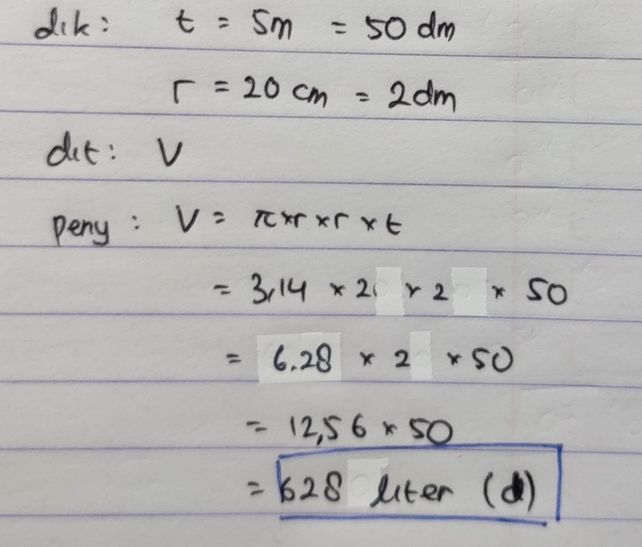 dik: t = 5m = 50 dm
r = 20 cm = 2dm
dit: V
peny: V = π×r×r×t
= 3,14 × 2 × 2 × 50
= 6.28 × 2 × 50
= 12,56 × 50
= 628 liter (d)